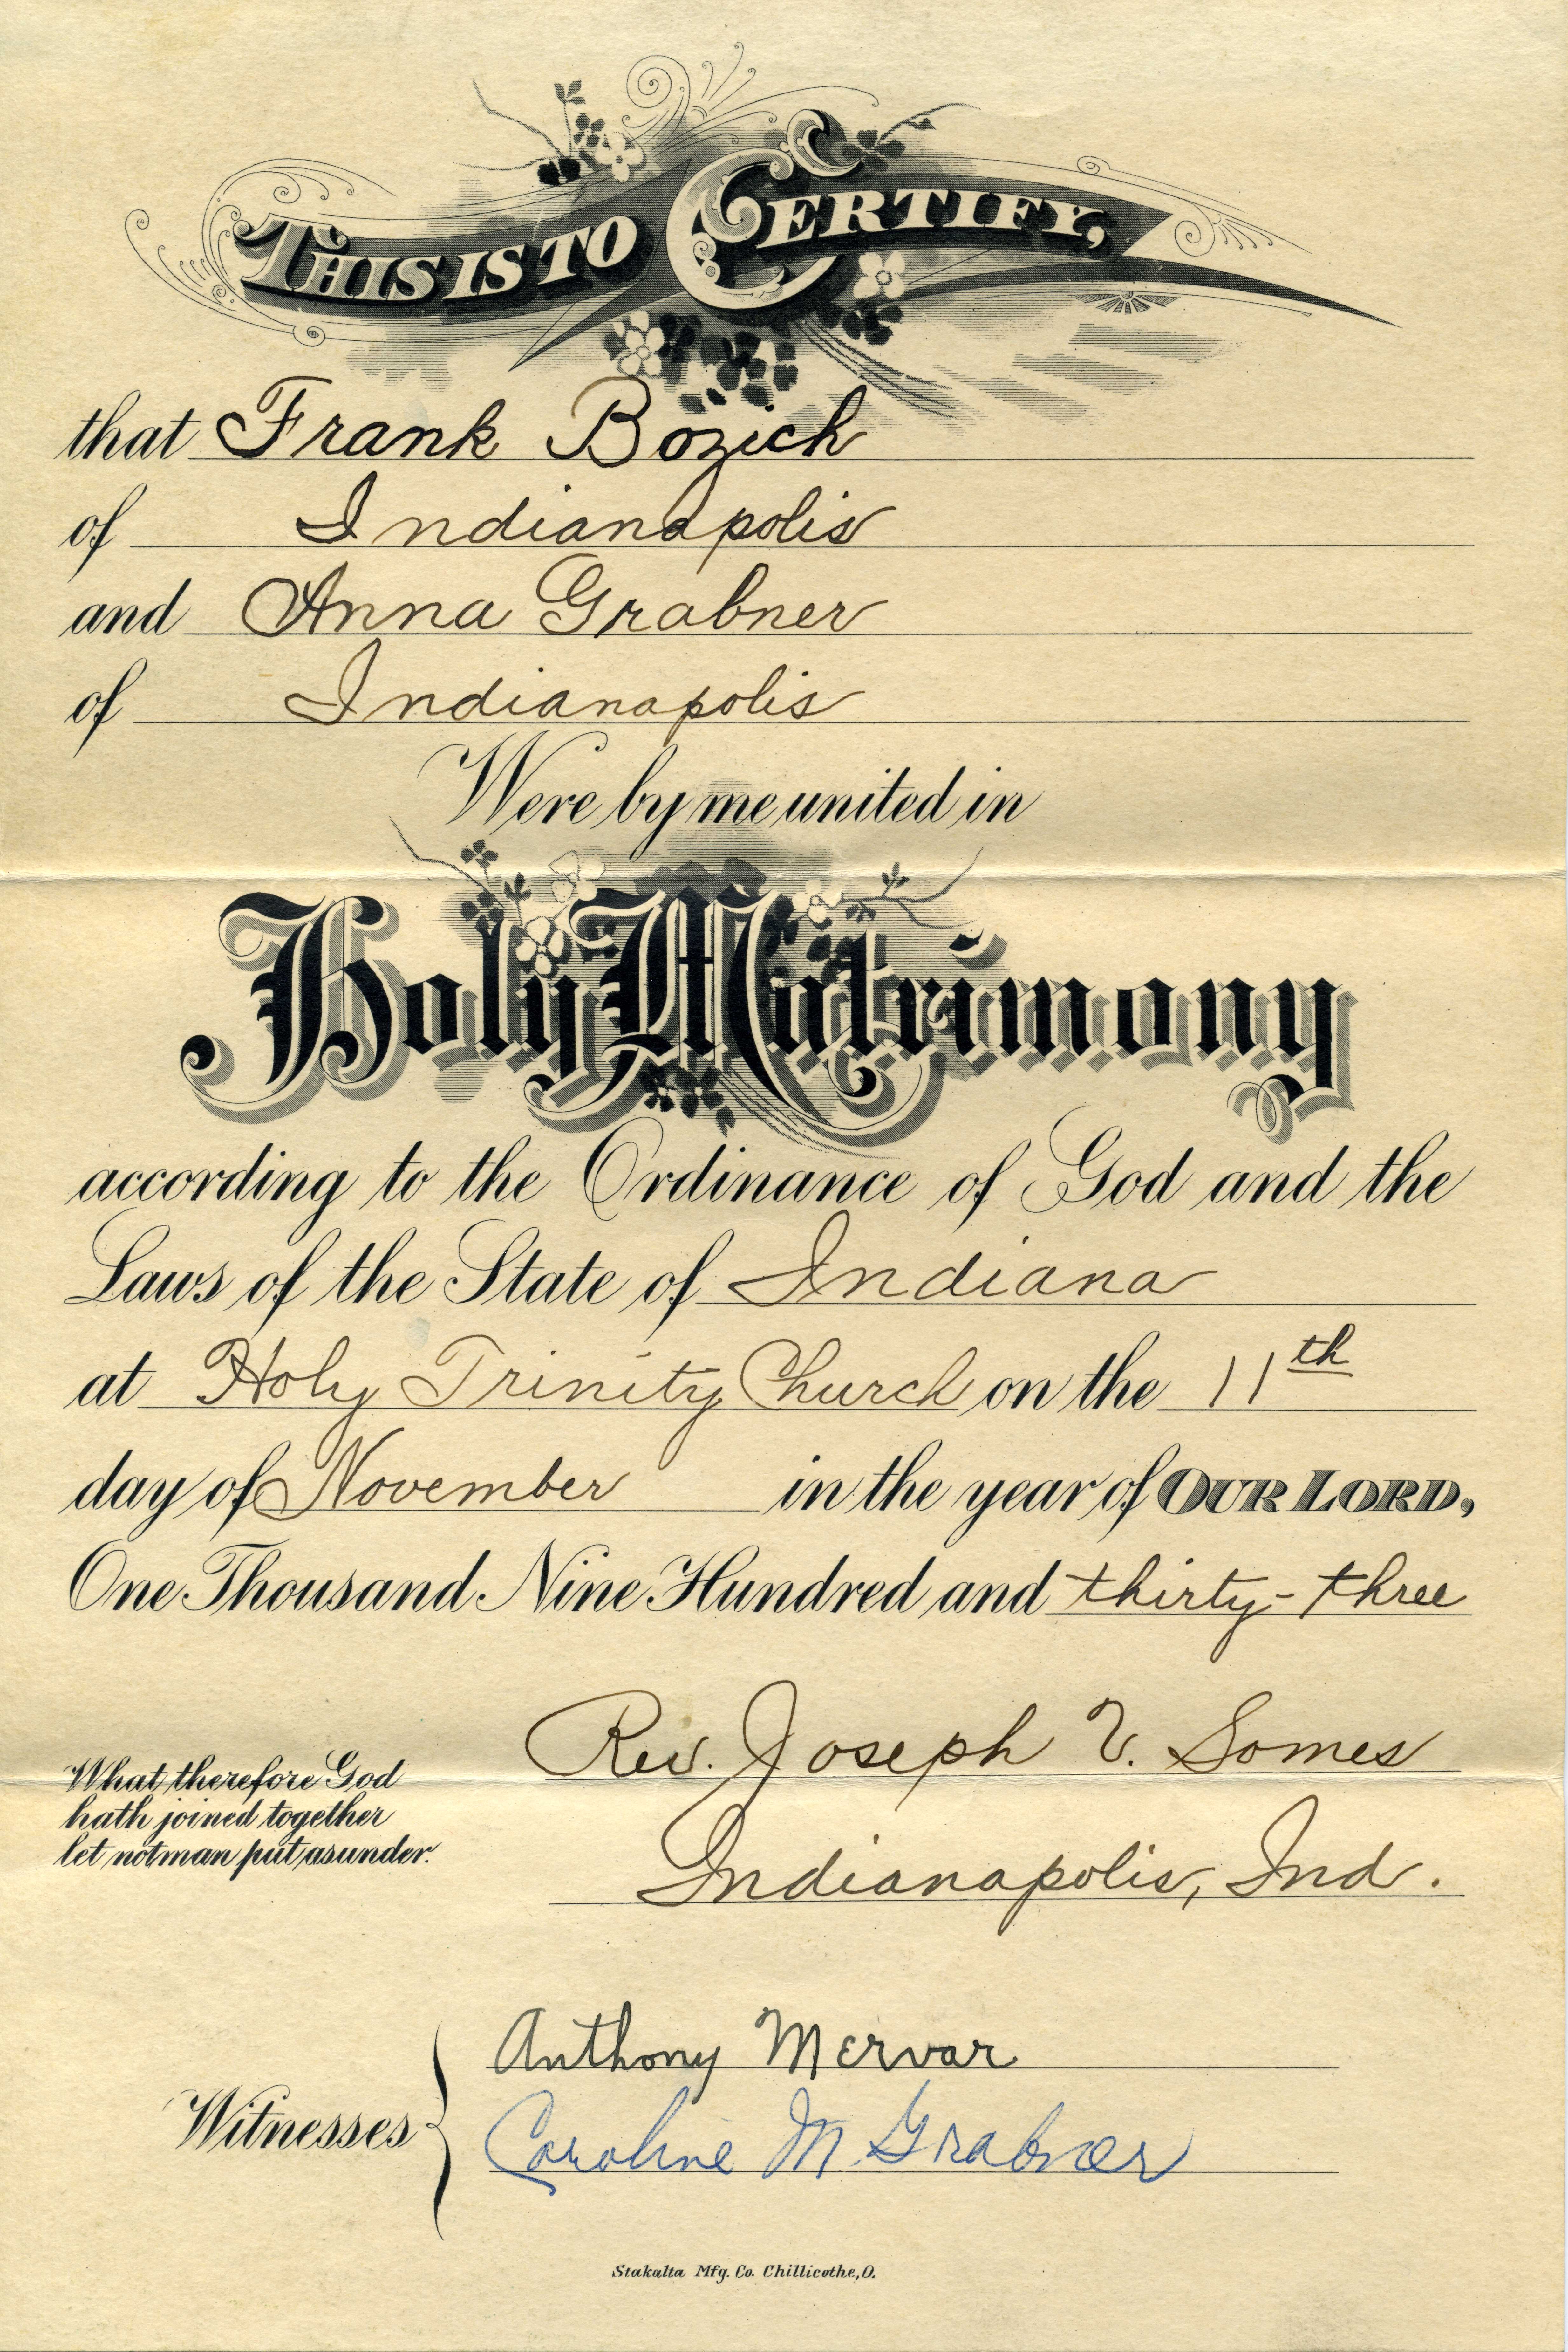 THIS IS TO CERTIFY,
that Frank Bozich
of Indianapolis
and Anna Grabner
of Indianapolis
Were by me united in
Holy Matrimony
according to the Ordinance of God and the
Laws of the State of Indiana
at Holy Trinity Church on the 11th
day of November in the year of OUR LORD,
One Thousand Nine Hundred and thirty-three
Rev. Joseph V. Somes
What therefore God
hath joined together
let not man put asunder.
Indianapolis, Ind.
Witnesses
Anthony Mervar
Caroline M. Grabner
Stakalta Mfg. Co. Chillicothe, O.